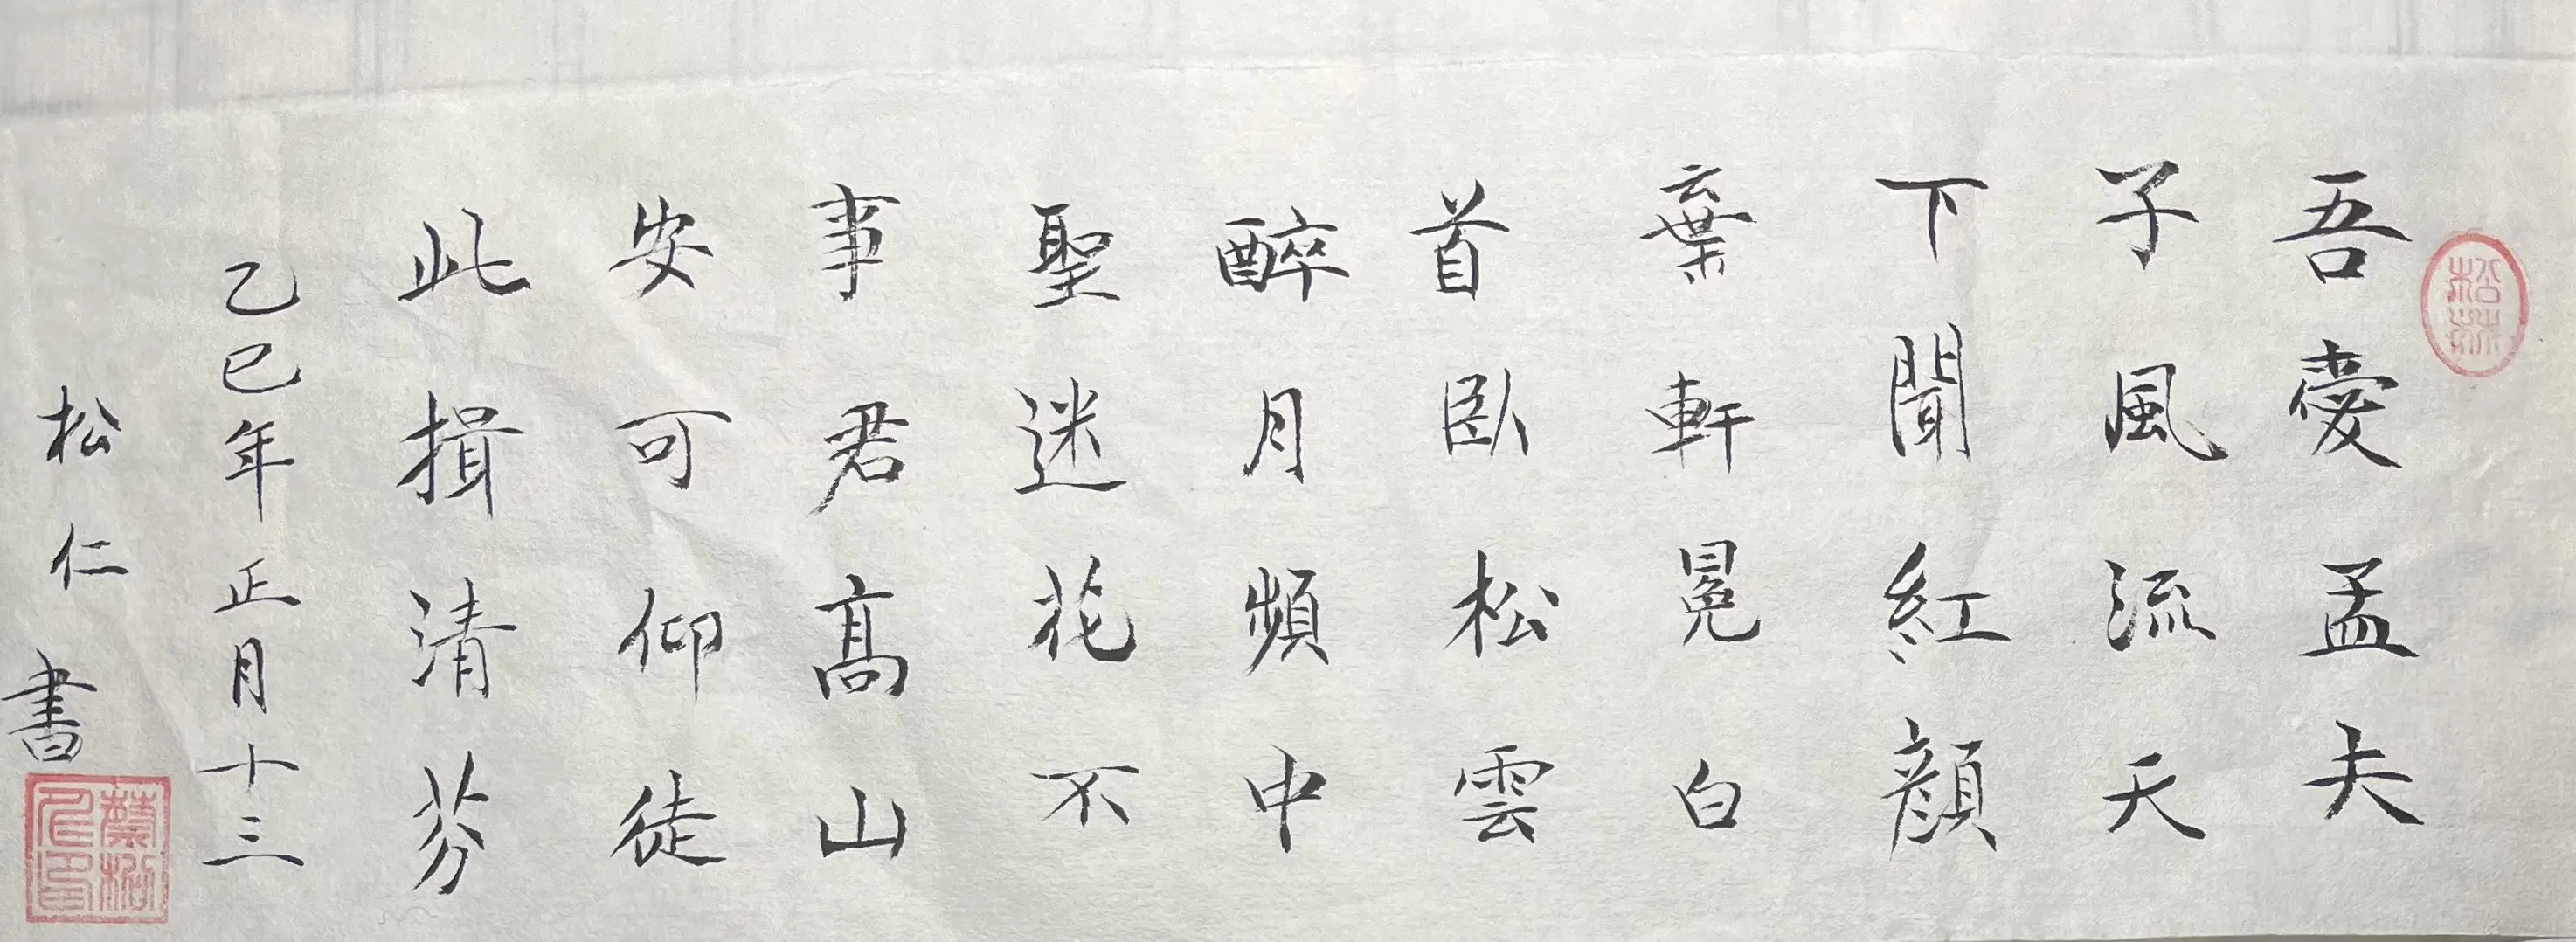 吾愛孟夫
子風流天
下聞紅顏
棄軒冕白
首臥松雲
醉月頻中
聖迷花不
事君高山
安可仰徒
此揖清芬
乙巳年正月十三
松仁書